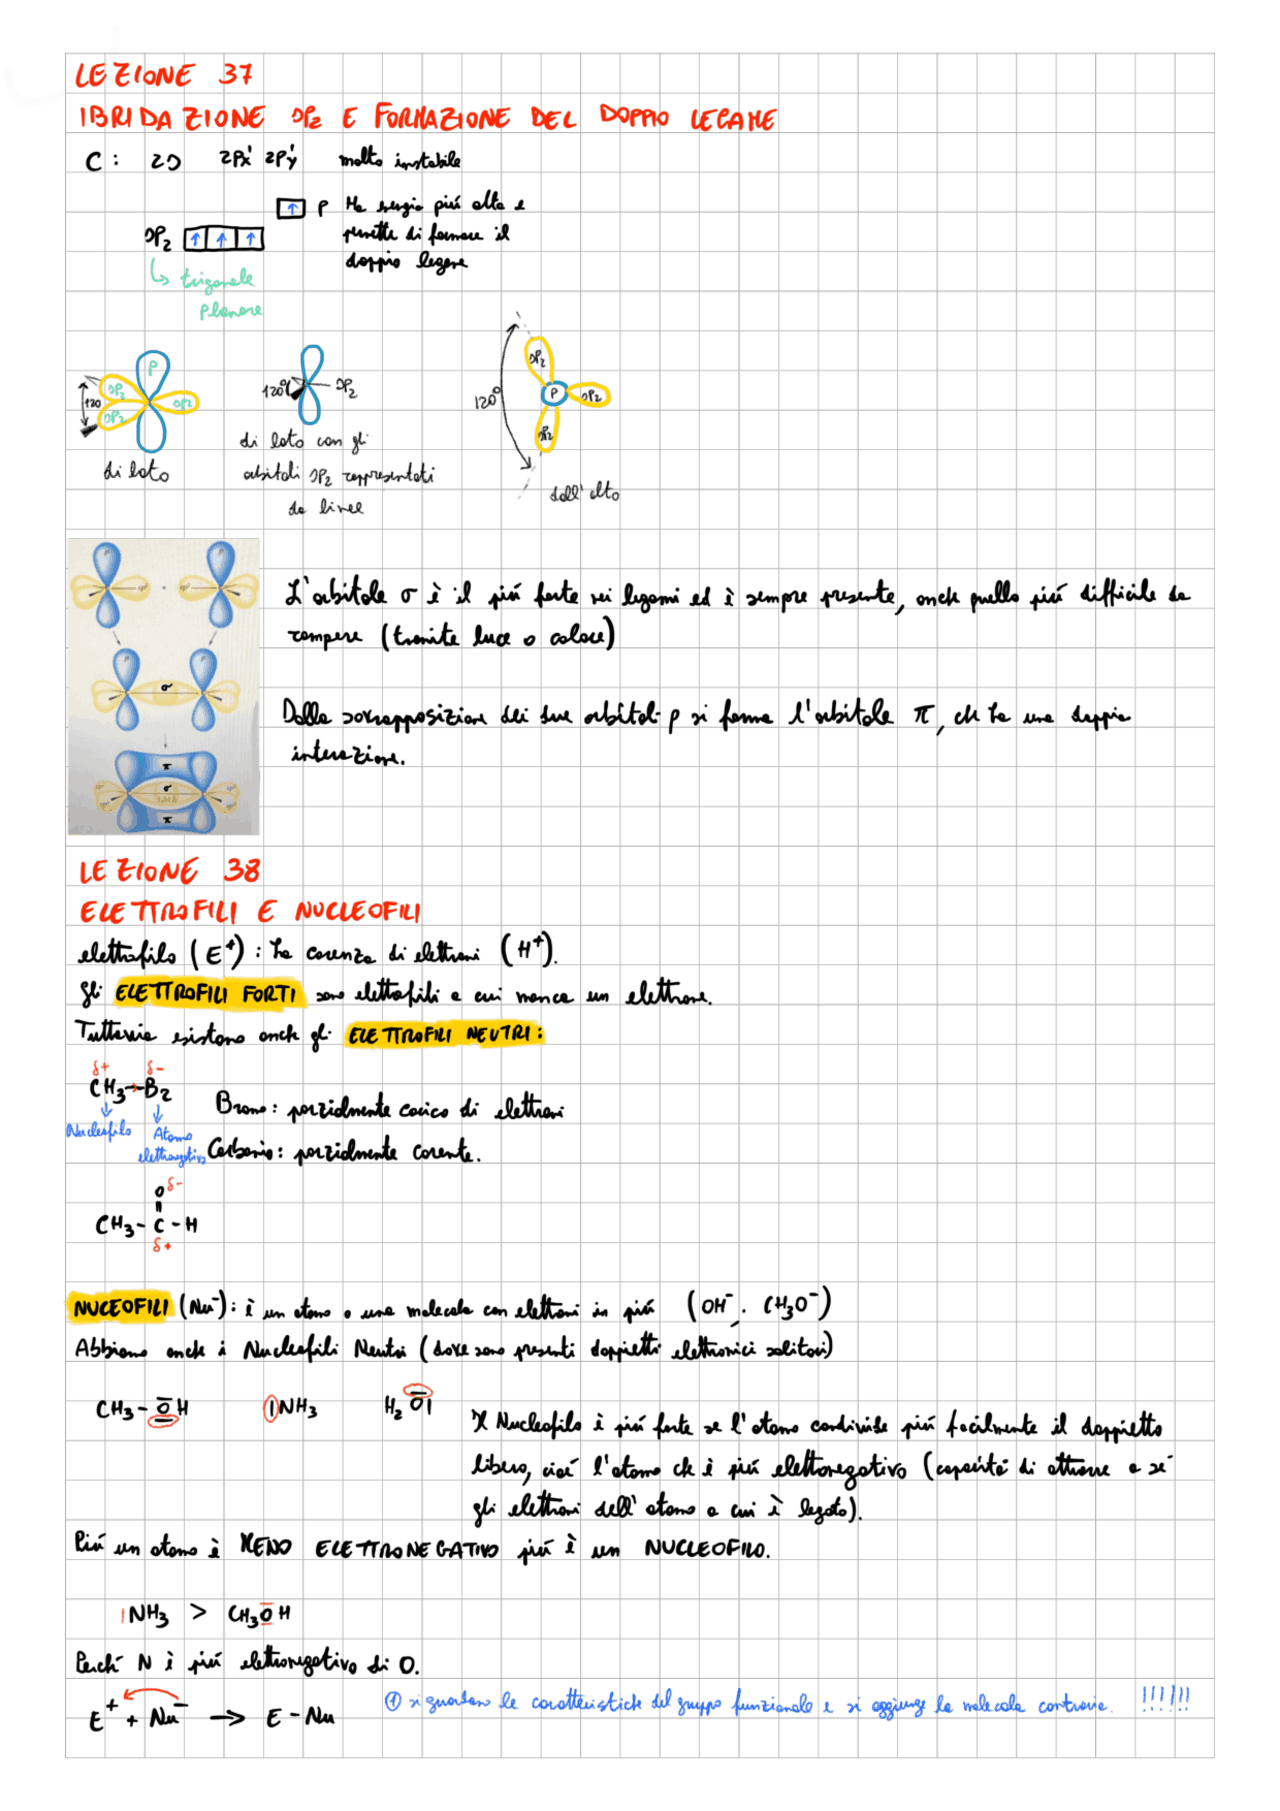 LEZIONE 37
IBRIDAZIONE SP2 E FORMAZIONE DEL DOPPIO LEGAME
C: 2S 2Px¹ 2Py¹ molto instabile
↑ P Ha energia più alta e
SP2 ↑ ↑ ↑ permette di formare il
doppio legame
↳ trigonale
planare
P
SP2 SP2
SP2
120
di lato
120° SP2
di lato con gli
orbitali SP2 rappresentati
da linee
120°
SP2
P SP2
SP2
dall'alto
L'orbitale σ è il più forte nei legami ed è sempre presente, anche quello più difficile da
rompere (tramite luce o calore)
Dalla sovrapposizione dei due orbitali p si forma l'orbitale π, che ha una doppia
interazione.
P P
sp² + sp²
σ
π
σ
π
LEZIONE 38
ELETTROFILI E NUCLEOFILI
elettrofilo (E⁺): ha carenza di elettroni (H⁺).
gli ELETTROFILI FORTI sono elettrofili a cui manca un elettrone.
Tuttavia esistono anche gli ELETTROFILI NEUTRI:
δ+ δ-
CH3-B2
Nucleofilo Atomo
elettronegativo
Bromo: parzialmente carico di elettroni
Carbonio: parzialmente carente.
O δ-
CH3-C-H
δ+
NUCEOFILI (Nu⁻): è un atomo o una molecola con elettroni in più (OH⁻, CH3O⁻)
Abbiamo anche i Nucleofili Neutri (dove sono presenti doppietti elettronici solitari)
CH3-OH |NH3 H2O|
Il Nucleofilo è più forte se l'atomo condivide più facilmente il doppietto
libero, cioé l'atomo che è più elettronegativo (capacità di attrarre a sé
gli elettroni dell'atomo a cui è legato).
Più un atomo è MENO ELETTRONEGATIVO più è un NUCLEOFILO.
|NH3 > CH3OH
Perché N è più elettronegativo di O.
E⁺ + Nu⁻ → E-Nu
① si guardano le caratteristiche del gruppo funzionale e si aggiunge la molecola contraria. !!!!!!